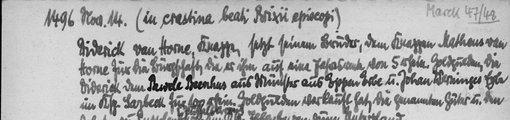 1496 Nov. 14. (in crastino beati Brixii episcopi) Marck 47/48
Diderick van Horne, Knappe, setzt seinem Bruder, dem Knappen Matheus van
Horne für die Bürgschaft, die er ihm auf eine Jahrrente von 5 rhein. Goldgulden, die
Diderick dem Pawele Beenhus aus Münster aus Eppen Erbe u. Johan Werninges Erbe
im Ksp. Larbeck für 100 rhein. Goldgulden verkauft hat, die genannten Güter u. den